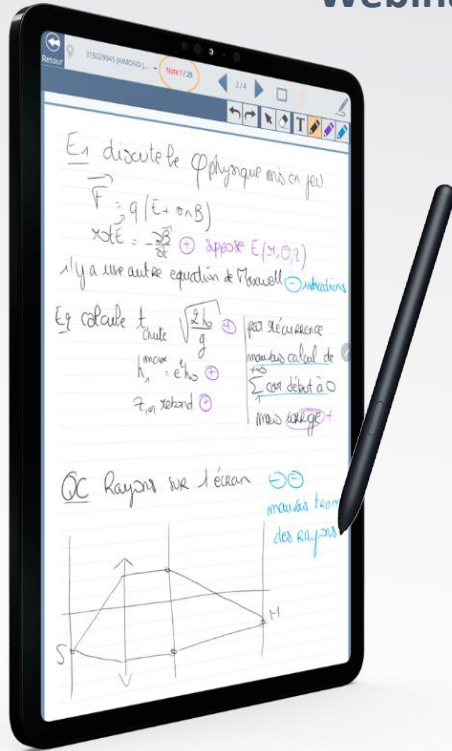 Webin
Retour
315029945 JAIMOND J...
Note 1 / 20
2/4
T
E1 discute le φ physique mis en jeu
F = q(E + v∧B)
rot E = - ∂B/∂t ⊕ suppose E(r,θ,z)
il y a une autre equation de Maxwell ⊖ indications
E2 calcule t chute √(2h₀/g) ⊕
h₁ max = e²h₀ ⊕
rebond ⊕
par récurrence
mauvais calcul de
+∞
Σ car début à 0
1
mais corrigé +
QC Rayons sur l'écran ⊖⊖
mauvais
des rayons
S
M